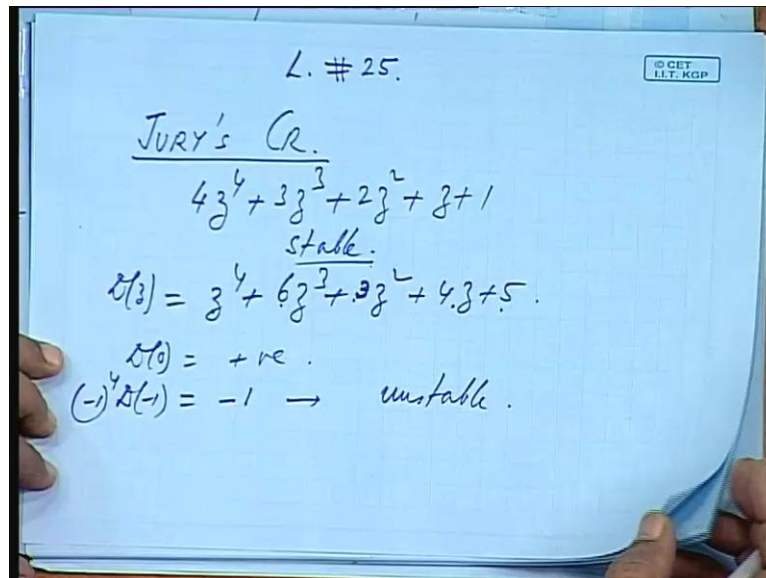 L. # 25.
© CET
I.I.T. KGP
JURY'S CR.
4z⁴ + 3z³ + 2z² + z + 1
stable.
D(z) = z⁴ + 6z³ + 3z² + 4z + 5.
D(0) = +ve.
(-1)⁴D(-1) = -1 → unstable.